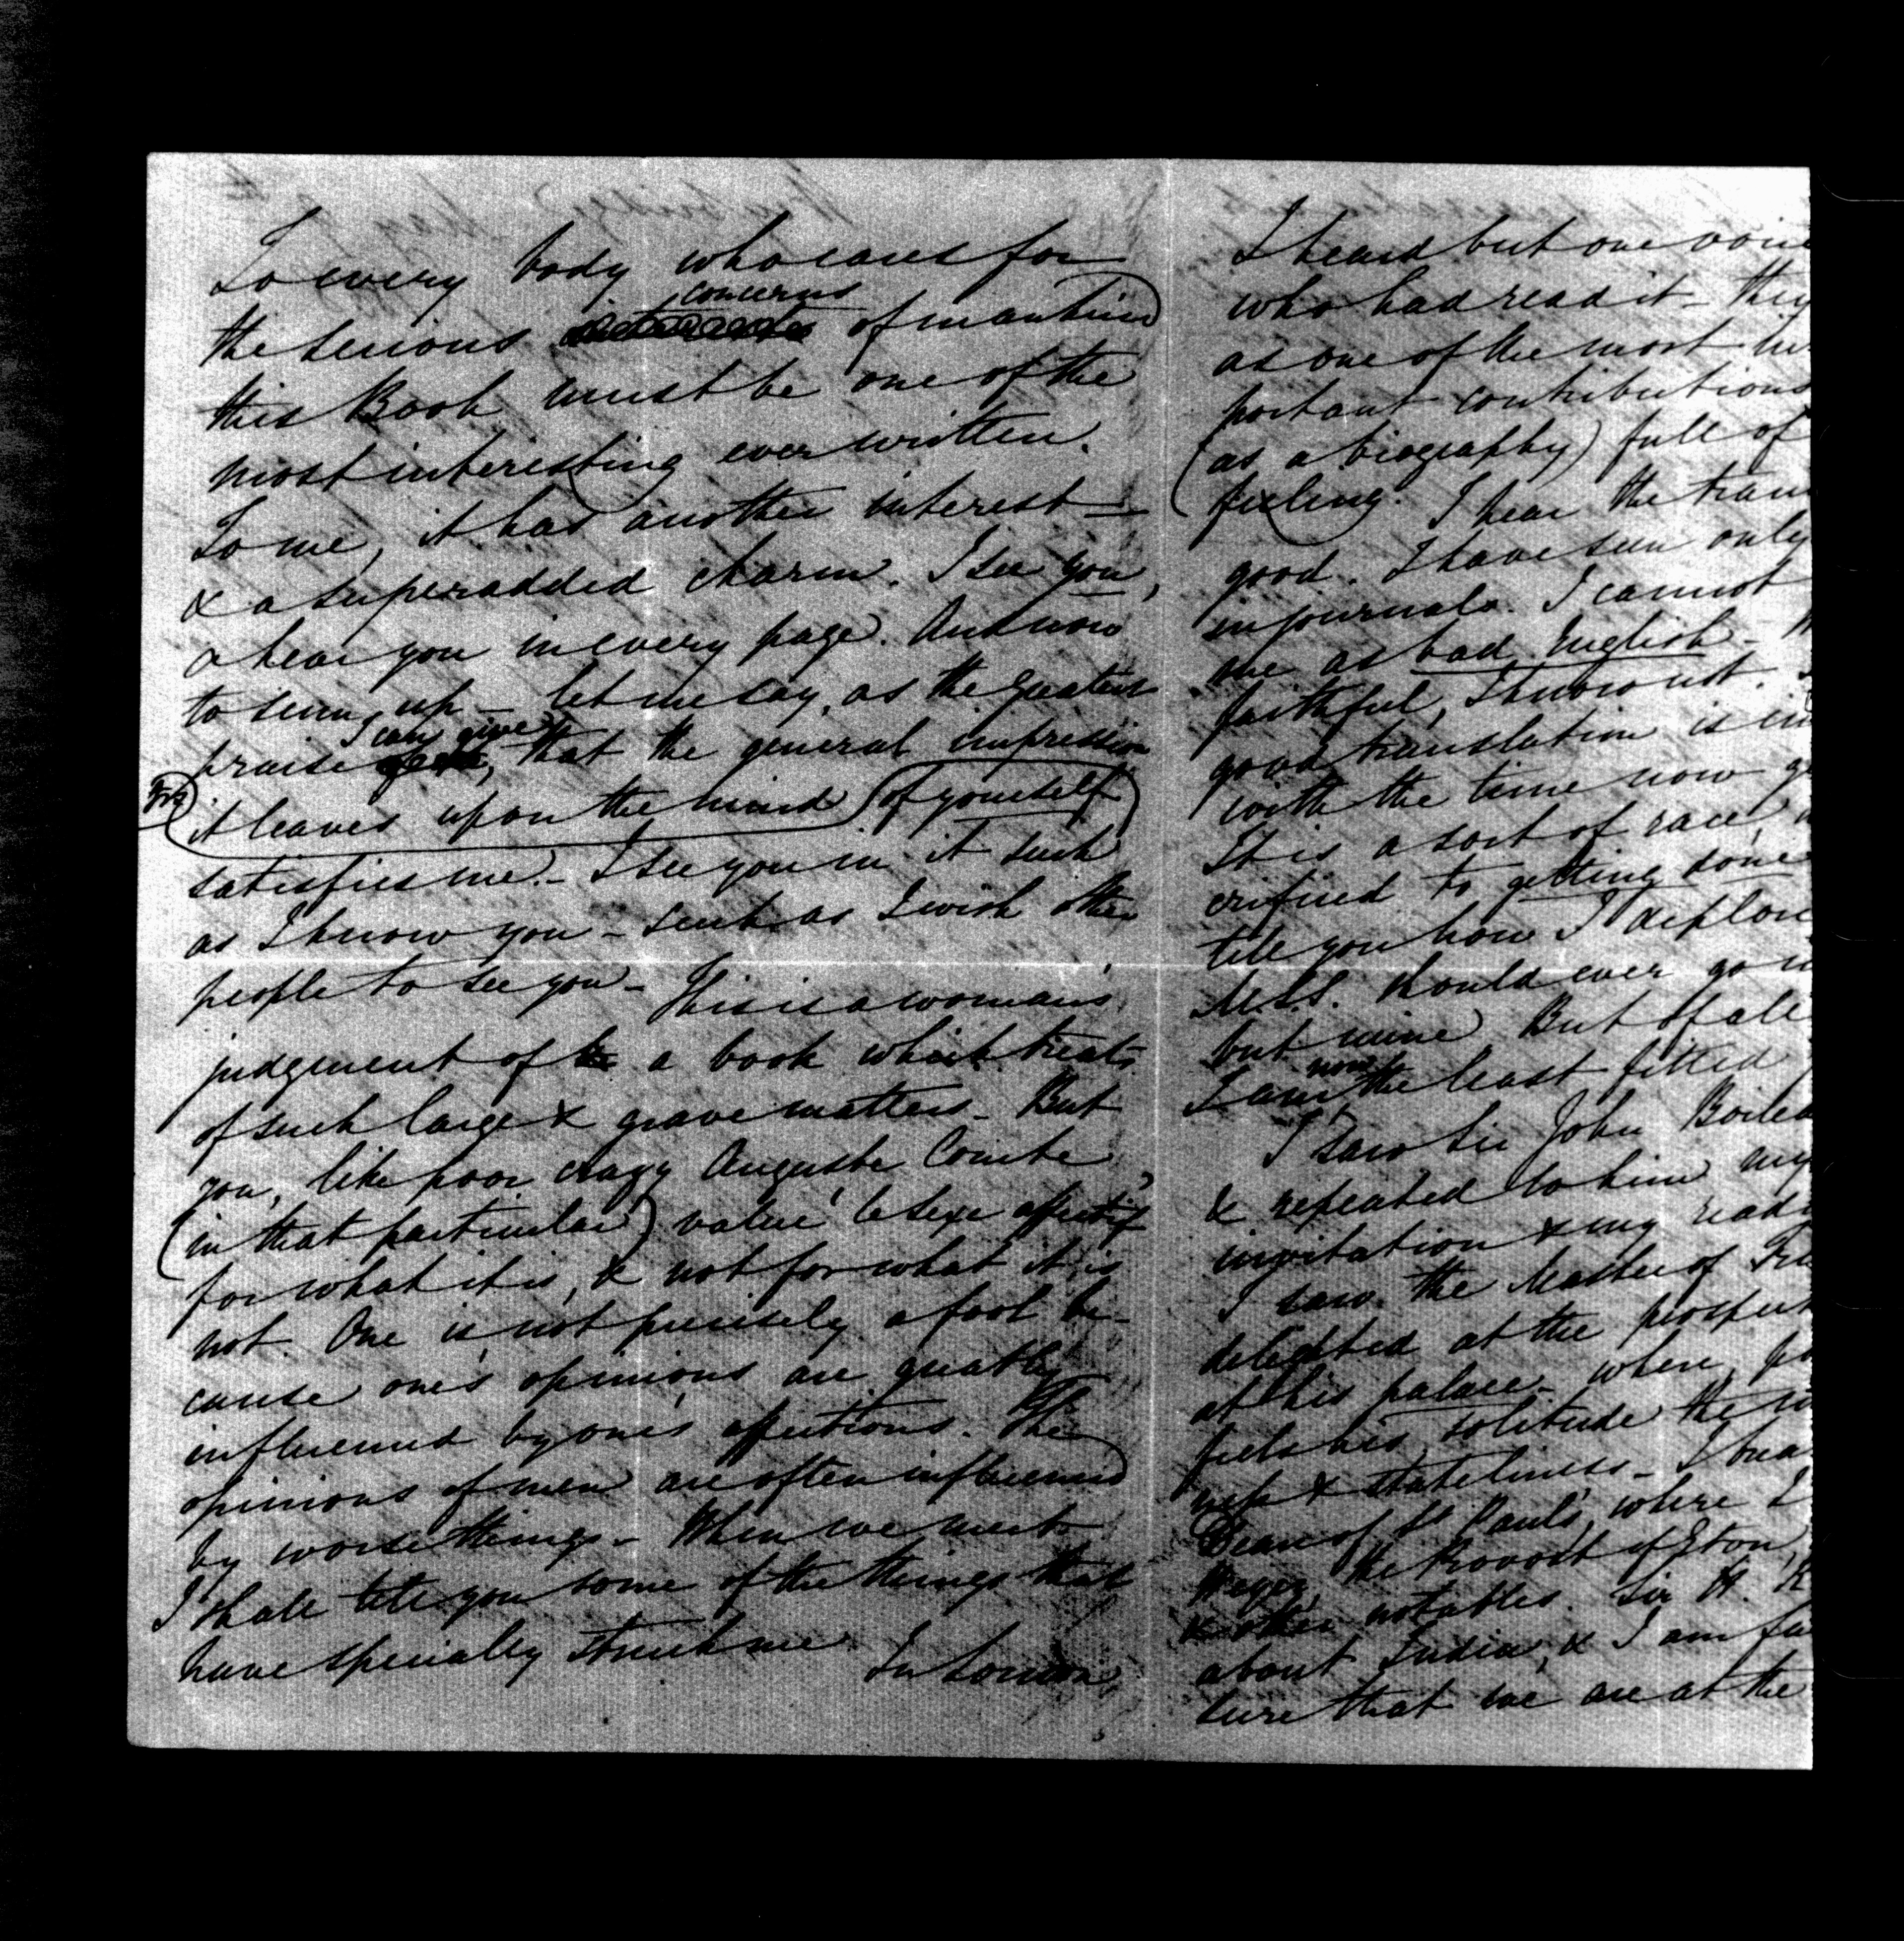 To every body who cares for
the serious concerns of mankind
this Book must be one of the
most interesting ever written.
To me, it has another interest —
& a superadded charm. I see you,
& hear you in every page. And now
to sum up — let me say, as the greatest
praise I can give, that the general impression
it leaves upon the mind of yourself
satisfies me. — I see you in it such
as I know you — such as I wish other
people to see you — This is a woman's
judgment of a book which treats
of such large & grave matters — But
you, like poor crazy Auguste Comte,
(in that particular) value 'le sexe affectif'
for what it is, & not for what it is
not. One is not precisely a fool be-
cause one's opinions are greatly
influenced by one's affections. The
opinions of men are often influenced
by worse things — When we meet
I shall tell you some of the things that
have specially struck me. In London,
I heard but one voice
who had read it — they
as one of the most im-
portant contributions
(as a biography) full of
feeling. I hear the tran
good. I have seen only
in journals. I cannot
me as bad English —
faithful, I know not.
good translation is im
with the time now gi
It is a sort of race,
crificed to getting done
tell you how I deplore
M.S.S. should ever go in
but mine But of all
I am now the least fitted
I saw Sir John Boilea
& repeated to him my
invitation & my read
I saw the Master of Tri
delighted at the prospect
at his palace — where, po
feels his solitude the m
ness & stateliness — I brea
Dean of St Paul's, where I
the Provost of Eton,
& other notables. Sir H.
about India, & I am fa
sure that we are at the